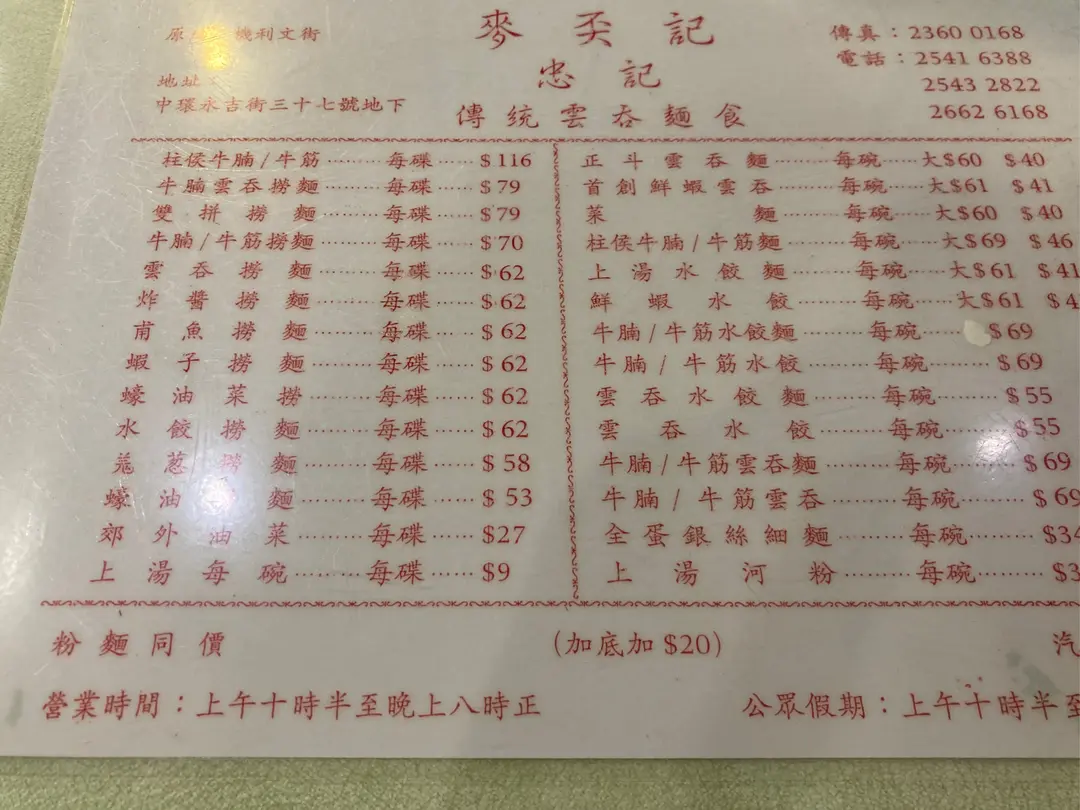 原 機利文街
麥奀記
忠記
傳統雲吞麵食
地址:
中環永吉街三十七號地下
傳真:2360 0168
電話:2541 6388
2543 2822
2662 6168
柱侯牛腩/牛筋 每碟 $116
牛腩雲吞撈麵 每碟 $79
雙拼撈麵 每碟 $79
牛腩/牛筋撈麵 每碟 $70
雲吞撈麵 每碟 $62
炸醬撈麵 每碟 $62
甫魚撈麵 每碟 $62
蝦子撈麵 每碟 $62
蠔油菜撈 每碟 $62
水餃撈麵 每碟 $62
蔥撈麵 每碟 $58
蠔油 麵 每碟 $53
郊外油菜 每碟 $27
上湯每碗 每碟 $9
正斗雲吞麵 每碗 大$60 $40
首創鮮蝦雲吞 每碗 大$61 $41
菜麵 每碗 大$60 $40
柱侯牛腩/牛筋麵 每碗 大$69 $46
上湯水餃麵 每碗 大$61 $41
鮮蝦水餃 每碗 大$61 $4
牛腩/牛筋水餃麵 每碗 $69
牛腩/牛筋水餃 每碗 $69
雲吞水餃麵 每碗 $55
雲吞水餃 每碗 $55
牛腩/牛筋雲吞麵 每碗 $69
牛腩/牛筋雲吞 每碗 $69
全蛋銀絲細麵 每碗 $34
上湯河粉 每碗 $3
粉麵同價
(加底加 $20)
汽
營業時間:上午十時半至晚上八時正
公眾假期:上午十時半至